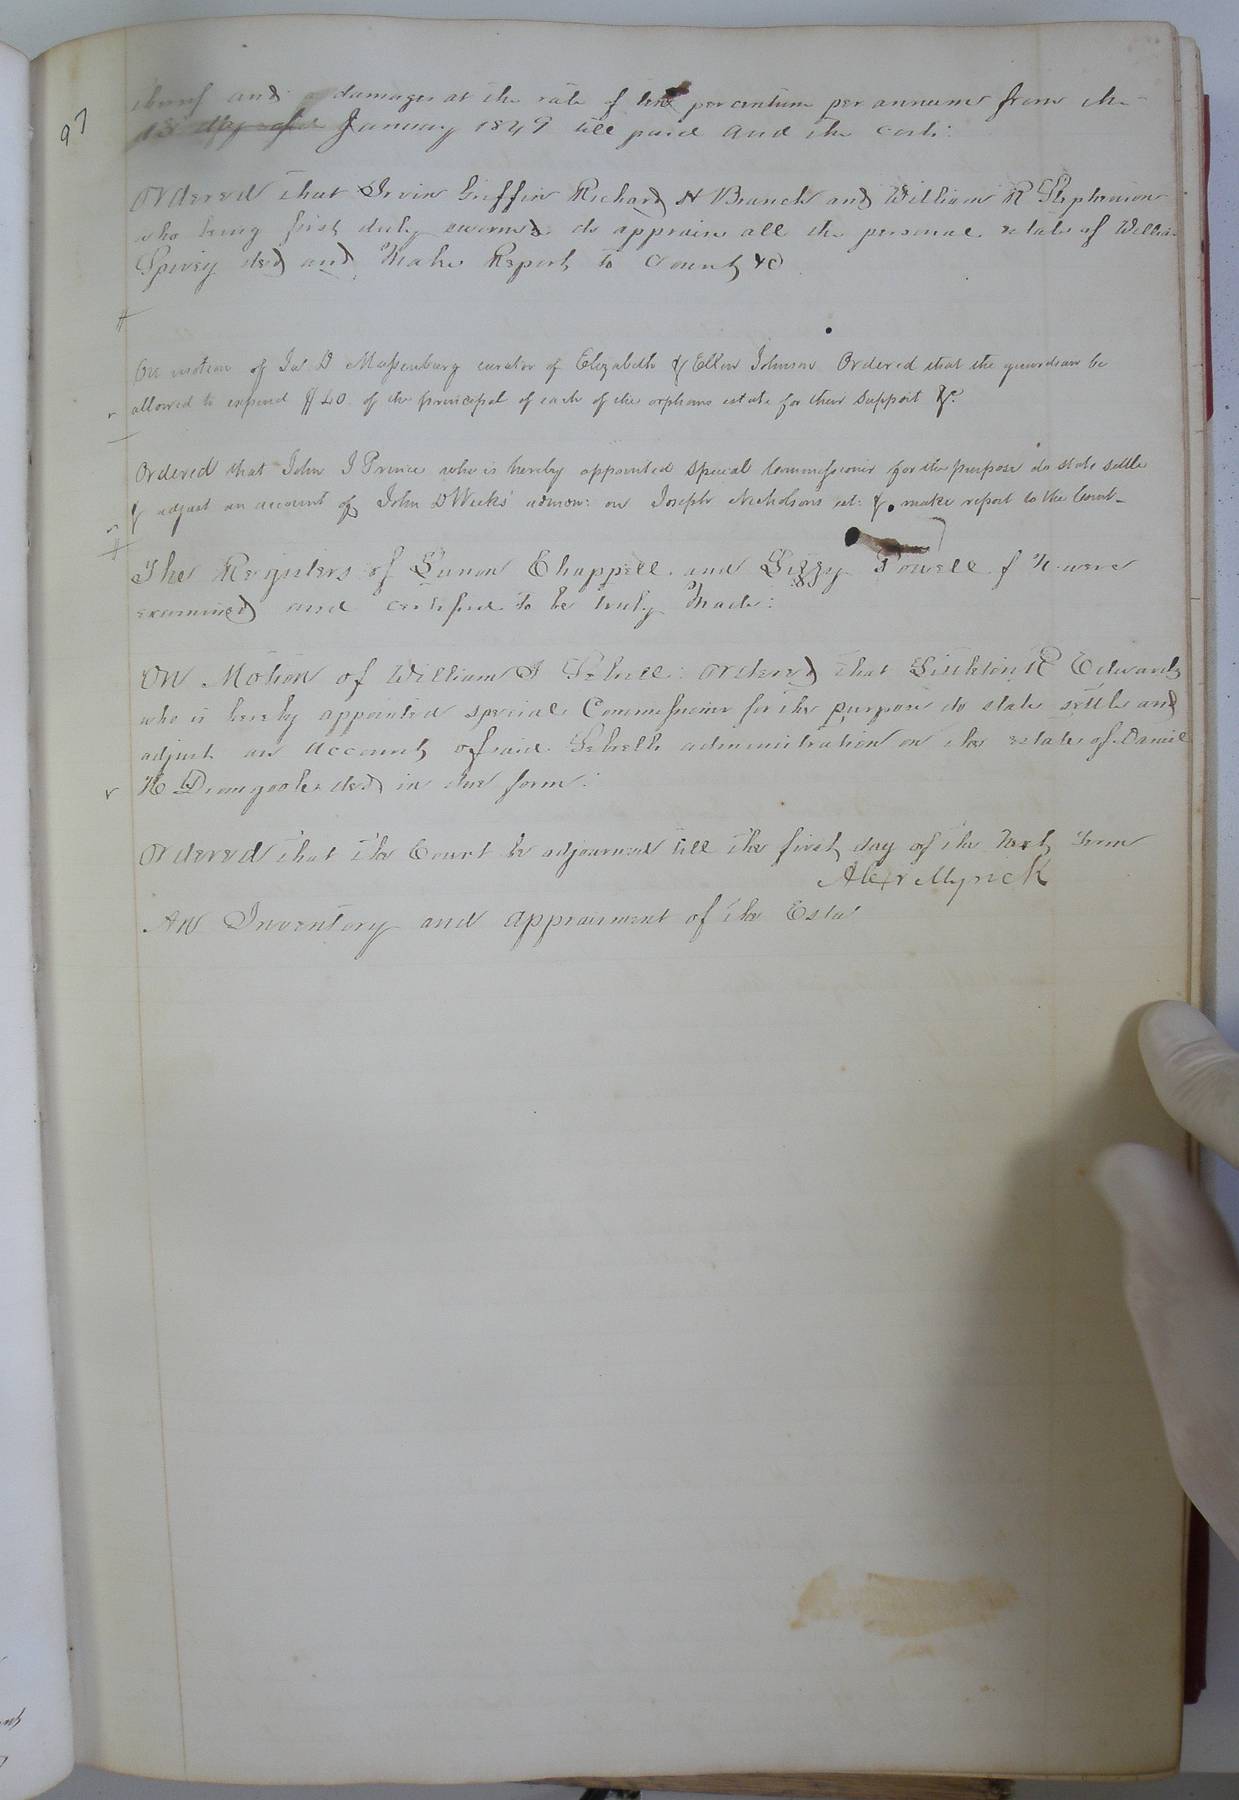 97
thereof and damages at the rate of ten per centum per annum from the
January 1849 till paid and the costs.
Ordered that Irvin Griffin Richard H Branch and William R Stephenson
who being first duly sworn do appraise all the personal estate of William
Spivey decd and Make Report to Court &c
On motion of Jas D Massenburg curator of Elizabeth & Ellen Johnson Ordered that the guardian be
allowed to expend $40 of the principal of each of the orphans estate for their support &c.
Ordered that John J Prince who is hereby appointed special Commissioner for the purpose do state settle
& adjust an account of John D Weeks' admon: on Joseph Nicholson's est: & make report to the Court -
The Registers of Chappell and Powell f N were
examined and certified to be truly Made:
On Motion of William Sebrell: Ordered that Littleton R Edwards
who is hereby appointed special Commissioner for the purpose do state settle and
adjust an account of said Sebrell's administration on the estate of Daniel
Dromgoole decd in due form:
Ordered that the Court be adjourned till the first day of the Next Term
Alexr Myrick
An Inventory and appraisment of the Esta